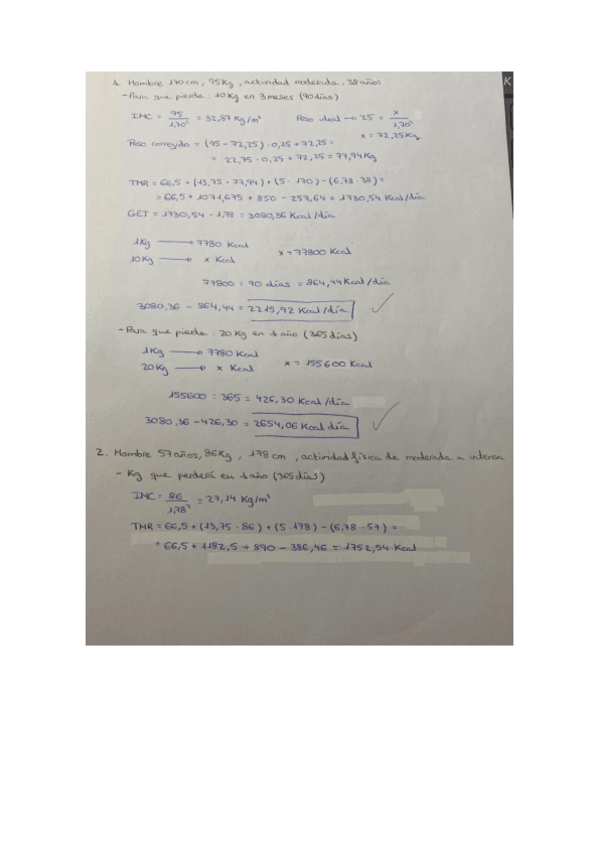 1. Hombre 170cm, 95Kg, actividad moderada, 38 años
- Para que pierda: 10Kg en 3 meses (90 días)
IMC = 95 / 1,70² = 32,87 Kg/m²   Peso ideal → 25 = x / 1,70²
x = 72,25Kg
Peso corregido = (95 - 72,25) · 0,25 + 72,25 =
= 22,75 · 0,25 + 72,25 = 77,94Kg
TMR = 66,5 + (13,75 · 77,94) + (5 · 170) - (6,78 · 38) =
= 66,5 + 1071,675 + 850 - 257,64 = 1730,54 Kcal/día
GET = 1730,54 · 1,78 = 3080,36 Kcal/día
1Kg → 7780 Kcal
10Kg → x Kcal   x = 77800 Kcal
77800 : 90 días = 864,44 Kcal/día
3080,36 - 864,44 = 2215,92 Kcal/día
- Para que pierda: 20Kg en 1 año (365 días)
1Kg → 7780 Kcal
20Kg → x Kcal   x = 155600 Kcal
155600 : 365 = 426,30 Kcal/día
3080,36 - 426,30 = 2654,06 Kcal día
2. Hombre 57 años, 86Kg, 178cm, actividad física de moderada a intensa
- Kg que perderá en 1 año (365 días)
IMC = 86 / 1,78² = 27,14 Kg/m²
TMR = 66,5 + (13,75 · 86) + (5 · 178) - (6,78 · 57) =
= 66,5 + 1182,5 + 890 - 386,46 = 1752,54 Kcal